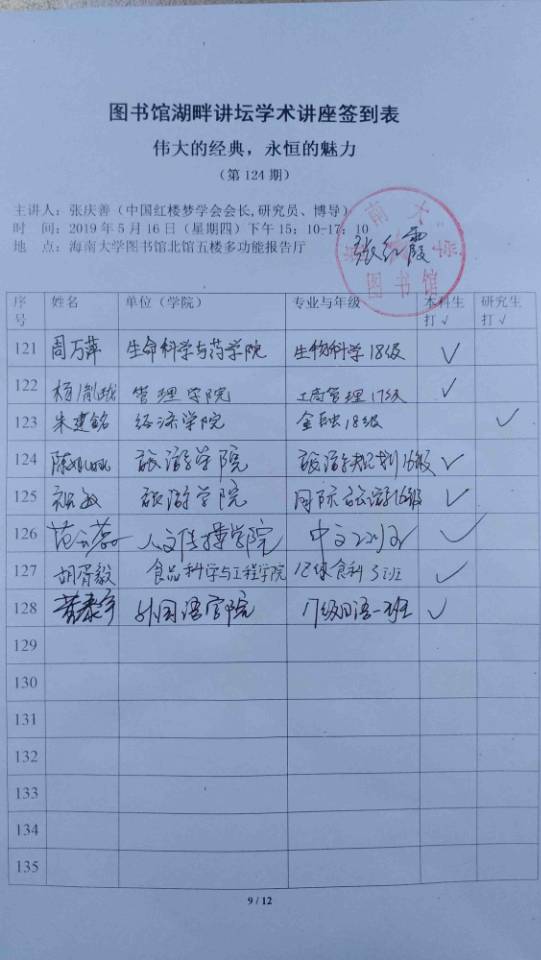 图书馆湖畔讲坛学术讲座签到表
伟大的经典，永恒的魅力
（第 124 期）
主讲人：张庆善（中国红楼梦学会会长,研究员、博导）
时 间：2019 年 5 月 16 日（星期四）下午 15：10-17：10
地 点：海南大学图书馆北馆五楼多功能报告厅
海南大学
图书馆
张红霞
序号 姓名 单位（学院） 专业与年级 本科生打√ 研究生打√
121 周万萍 生命科学与药学院 生物科学18级 √
122 管理学院 工商管理17级 √
123 朱建铭 经济学院 金融18级 √
124 旅游学院 旅游规划16级 √
125 祝敏 旅游学院 国际旅游16级 √
126 人文传播学院 中文 √
127 胡胥毅 食品科学与工程学院 18级食科3班 √
128 黄泰宇 外国语学院 17级日语一班 √
129
130
131
132
133
134
135
9 / 12